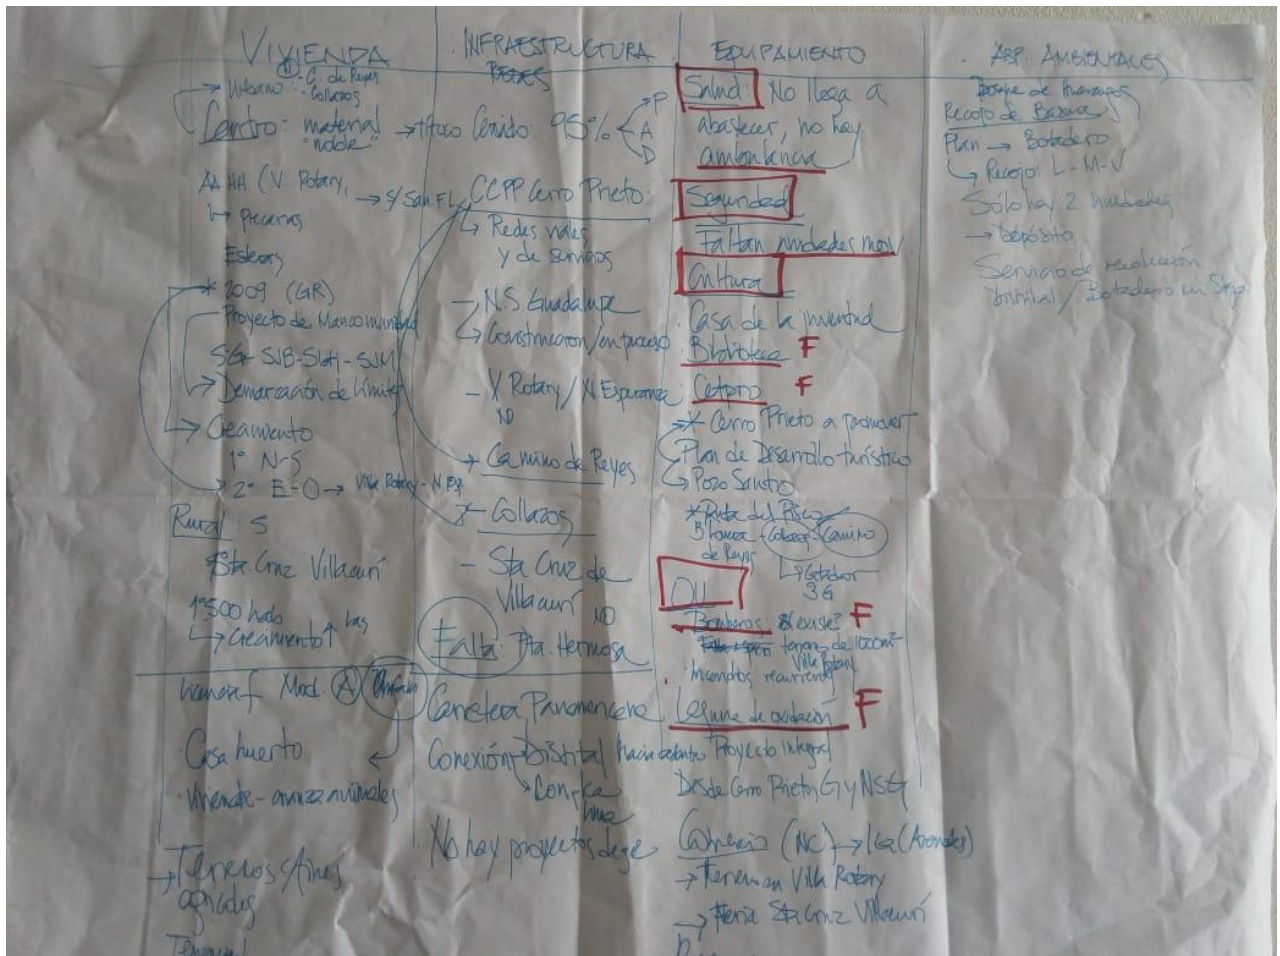 VIVIENDA
Urbano: - C. de Reyes
- Collazos
Centro: material
"noble"
AAHH (V. Rotary,
↳ precarias
Esteras
* 2009 (GR)
Proyecto de Mancomunidad
Demarcación de Límites
→ Crecimiento
1° N-S
2° E-O → Villa Rotary - N.Esp.
Rural S
Sta. Cruz Villacurí
1°500 hab
↳ crecimiento ↑
Mod. A
Casa huerto
Vivienda - crianza animales
→ Terrenos
agrícolas
INFRAESTRUCTURA
REDES
95%
P
A
D
CCPP Cerro Prieto:
↳ Redes viales
y de servicios
- N.S. Guadalupe
↳ Construcción/en proceso
- V. Rotary / N. Esperanza
NO
* Camino de Reyes
* Collazos
- Sta Cruz de
Villacurí
NO
Falta: Pta. Hermosa
Carretera Panamericana
Conexión Distrital hacia
No hay proyectos de
EQUIPAMIENTO
Salud: No llega a
abastecer, no hay
ambulancia
Seguridad
Faltan unidades
Cultura
Casa de la juventud
Biblioteca F
Cetpro F
* Cerro Prieto a promover
Plan de Desarrollo turístico
↳ Pozo Santo
* Ruta del Pisco
Camino
de Reyes
↳ Catador
3G
OU
Bomberos: existe? F
terreno de 1000m²
Villa Rotary
Incendios recurrentes
Laguna de oxidación F
Proyecto Integral
Desde Cerro Prieto, G y NSG
Comercio (NC) → Ica
→ Terreno en Villa Rotary
→ Feria Sta Cruz Villacurí
ASP. AMBIENTALES
Bosque de Huarangos
Recojo de Basura
Plan → Botadero
↳ Recojo: L - M - V
Sólo hay 2 unidades
→ Depósito
Servicio de recolección
Distrital / Botadero en